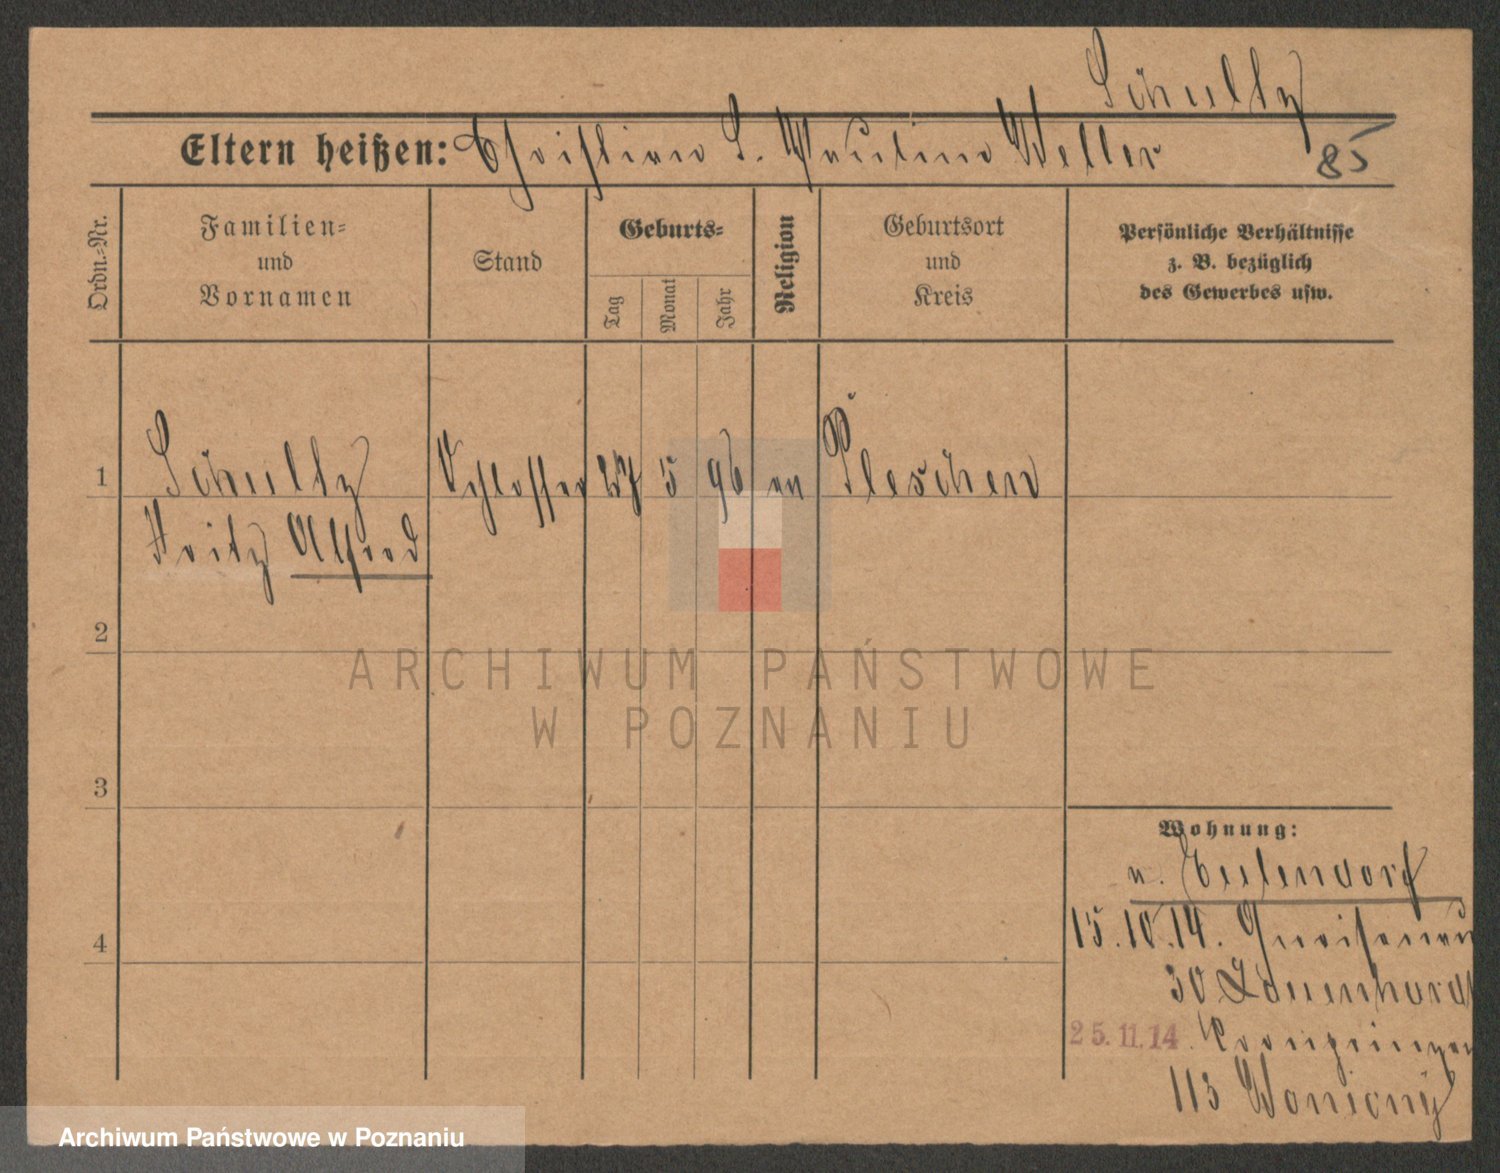 Schultz
Eltern heißen: Christian S. Pauline Weller 85
Ordn.-Nr.
Familien-
und
Vornamen
Stand
Geburts-
Tag
Monat
Jahr
Religion
Geburtsort
und
Kreis
Persönliche Verhältnisse
z. B. bezüglich
des Gewerbes usw.
1 Schultz Schlosser 27 5 96 Pleschen
Fritz Alfred
2
3
4
Wohnung:
Eulendorf
15.10.14. Gneisenau
30
25.11.14. Kronprinzen
113
ARCHIWUM PAŃSTWOWE
W POZNANIU
Archiwum Państwowe w Poznaniu